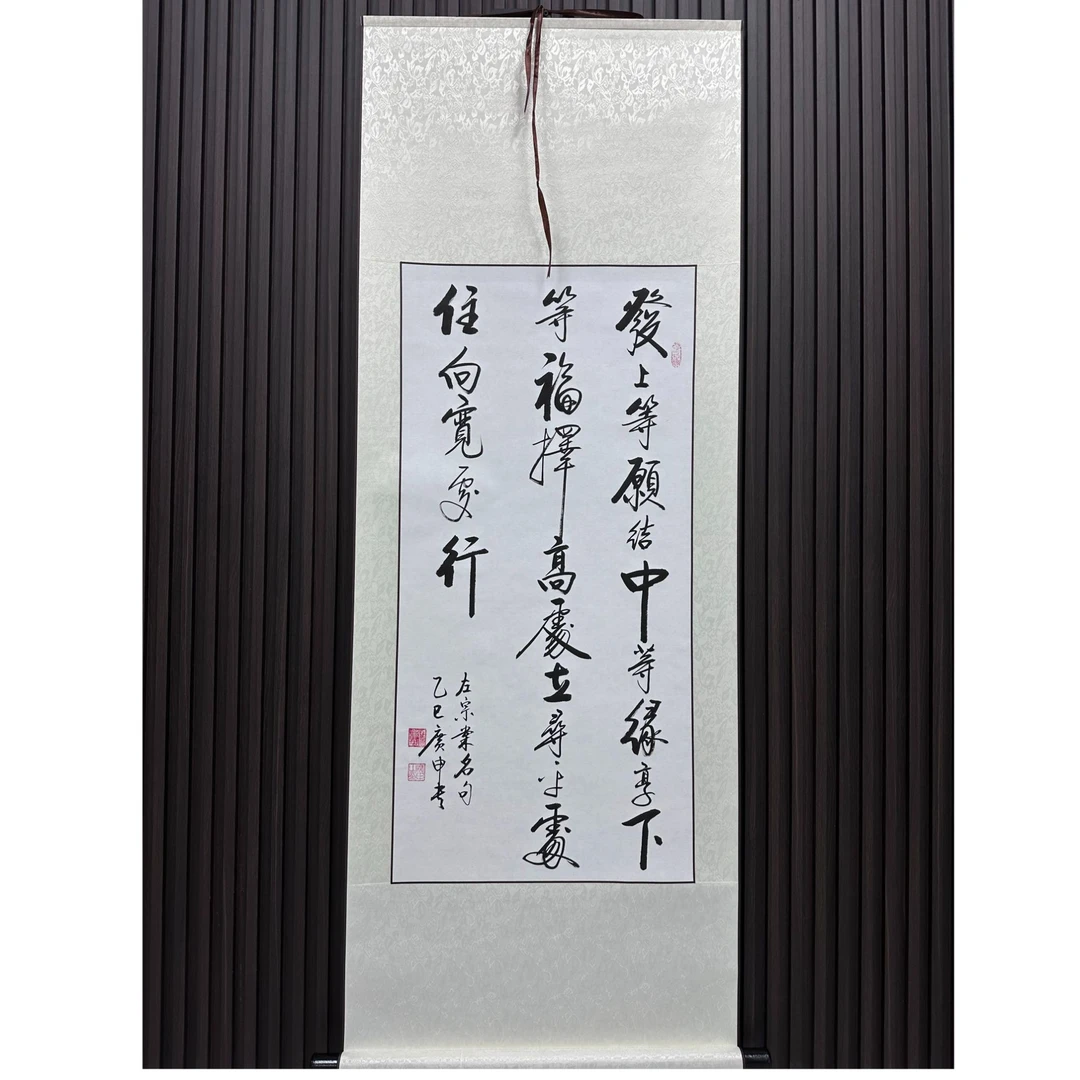 發上等願結中等緣享下
等福擇高處立尋平處
住向寬處行
左宗棠名句
乙巳廣申书